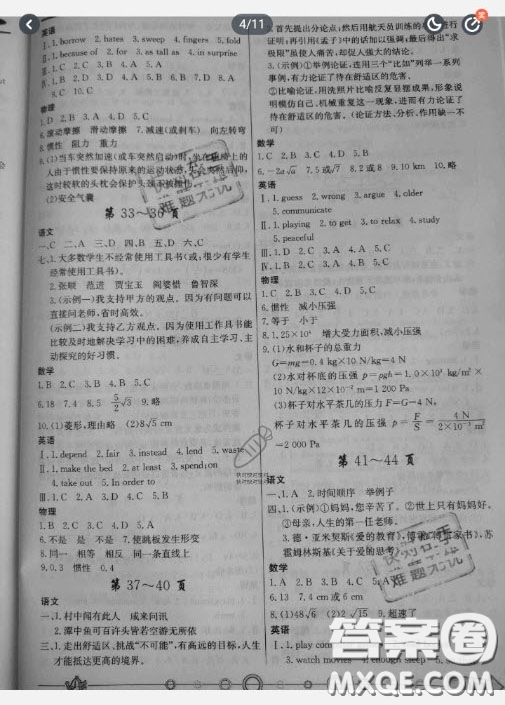 4/11
英语
Ⅰ.1.borrow 2.hates 3.sweep 4.fingers 5.fold
Ⅱ.1.because of 2.for 3.as tall as 4.in surprise
Ⅲ.1.C 2.B 3.D 4.A 5.C
Ⅳ.1.B 2.D 3.D 4.A 5.C 6.B 7.D 8.A
9.C 10.C
物理
1.D 2.B 3.A 4.D 5.B
6.滚动摩擦 滑动摩擦 7.减速(或刹车) 向左转弯
8.惯性 阻力 重力
9.(1)当车突然加速(或车突然启动)时,坐在座椅上的
人由于惯性要保持原来的运动状态,
这时较软的头枕会保护头颈不被撞伤
(2)安全气囊
第 33～36 页
语文
一、C 二、A 三、D 四、B 五、D 六、C
七、1.大多数学生不经常使用工具书(或:很少有学生
经常使用工具书)。
2.张顺 范进 贾宝玉 阎婆惜 鲁智深
3.(示例一)我支持甲方的观点。因为有问题可以
直接问老师,省时高效。
(示例二)我支持乙方观点。因为使用工具书能
比较及时地解决学习中的困难,养成自主学习、主
动探究的好习惯。
数学
1.B 2.C 3.B 4.B 5.C
6.18 7.4 8.5 5/2√3 9.略
10.(1)菱形,理由略 (2)8√5 cm
英语
Ⅰ.1.depend 2.fair 3.instead 4.lend 5.waste
Ⅱ.1.make the bed 2.at least 3.spend;on
4.take out 5.In order to
Ⅲ.1.B 2.C 3.D 4.C 5.C
物理
1.D 2.C 3.B 4.C 5.A
6.不是 是 不是 7.使跳板发生形变
8.同一 相等 相反 同一条直线上
9.0.3 惯性 0.4
第 37～40 页
语文
一、1.村中闻有此人 咸来问讯
2.潭中鱼可百许头皆若空游无所依
三、1.走出舒适区,挑战“不可能”,有高远的目标,人生
才能抵达更高的境界。
2.首先提出分论点,然后用航天员训练的
证明,再引用《孟子》中的话加以强调,最后得出“求
极限”虽伤痛却人,却促人强大的结论。
3.(示例)①举例论证。连用三个“比如”列举一系列
事例,有力论证了待在舒适区的危害。
②比喻论证,用洗照片比喻反复显摆成果,形象说
明模仿自己、机械重复这一现象,有力论证了待在
舒适区的危害。(论证方法、分析、作用缺一不
可)
数学
1.C 2.B 3.C 4.D 5.C
6.-2a√a 7.5或√7 8.2或8 9.10 km 10.略
英语
Ⅰ.1.guess 2.wrong 3.argue 4.older
5.communicate
Ⅱ.1.playing 2.to get 3.to relax 4.study
5.peaceful
Ⅲ.1.C 2.D 3.C 4.B 5.A
Ⅳ.1.C 2.D 3.A 4.A 5.C
物理
1.C 2.B 3.C 4.B 5.C
6.惯性 减小压强
7.等于 小于
8.1.25×10⁴ 增大受力面积,减小压强
9.(1)水和杯子的总重力
G=mg=0.4 kg×10 N/kg=4 N
(2)水对杯底的压强 p=ρgh=1.0×10³ kg/m³×
10 N/kg×12×10⁻² m=1 200 Pa
(3)杯子对水平茶几的压力 F=G=4 N,
杯子对水平茶几的压强 p=F/S=4 N/2×10⁻³ m²
=2 000 Pa
第 41～44 页
语文
一、1.A 2.时间顺序 举例子
四、1.(示例)①妈妈,您辛苦了。②世上只有妈妈好。
③母亲,人生的第一任老师。
3.德·亚米契斯《爱的教育》
霍姆林斯基《关于爱的思考》
数学
1.A 2.B 3.D 4.D 5.C
6.13 7.4 cm 或 6 cm
8.(1)48√6 (2)2√15 9.超速了
英语
Ⅰ.1.play com
3.watch movies 4.enough sleep
答案圈
MXQE.COM